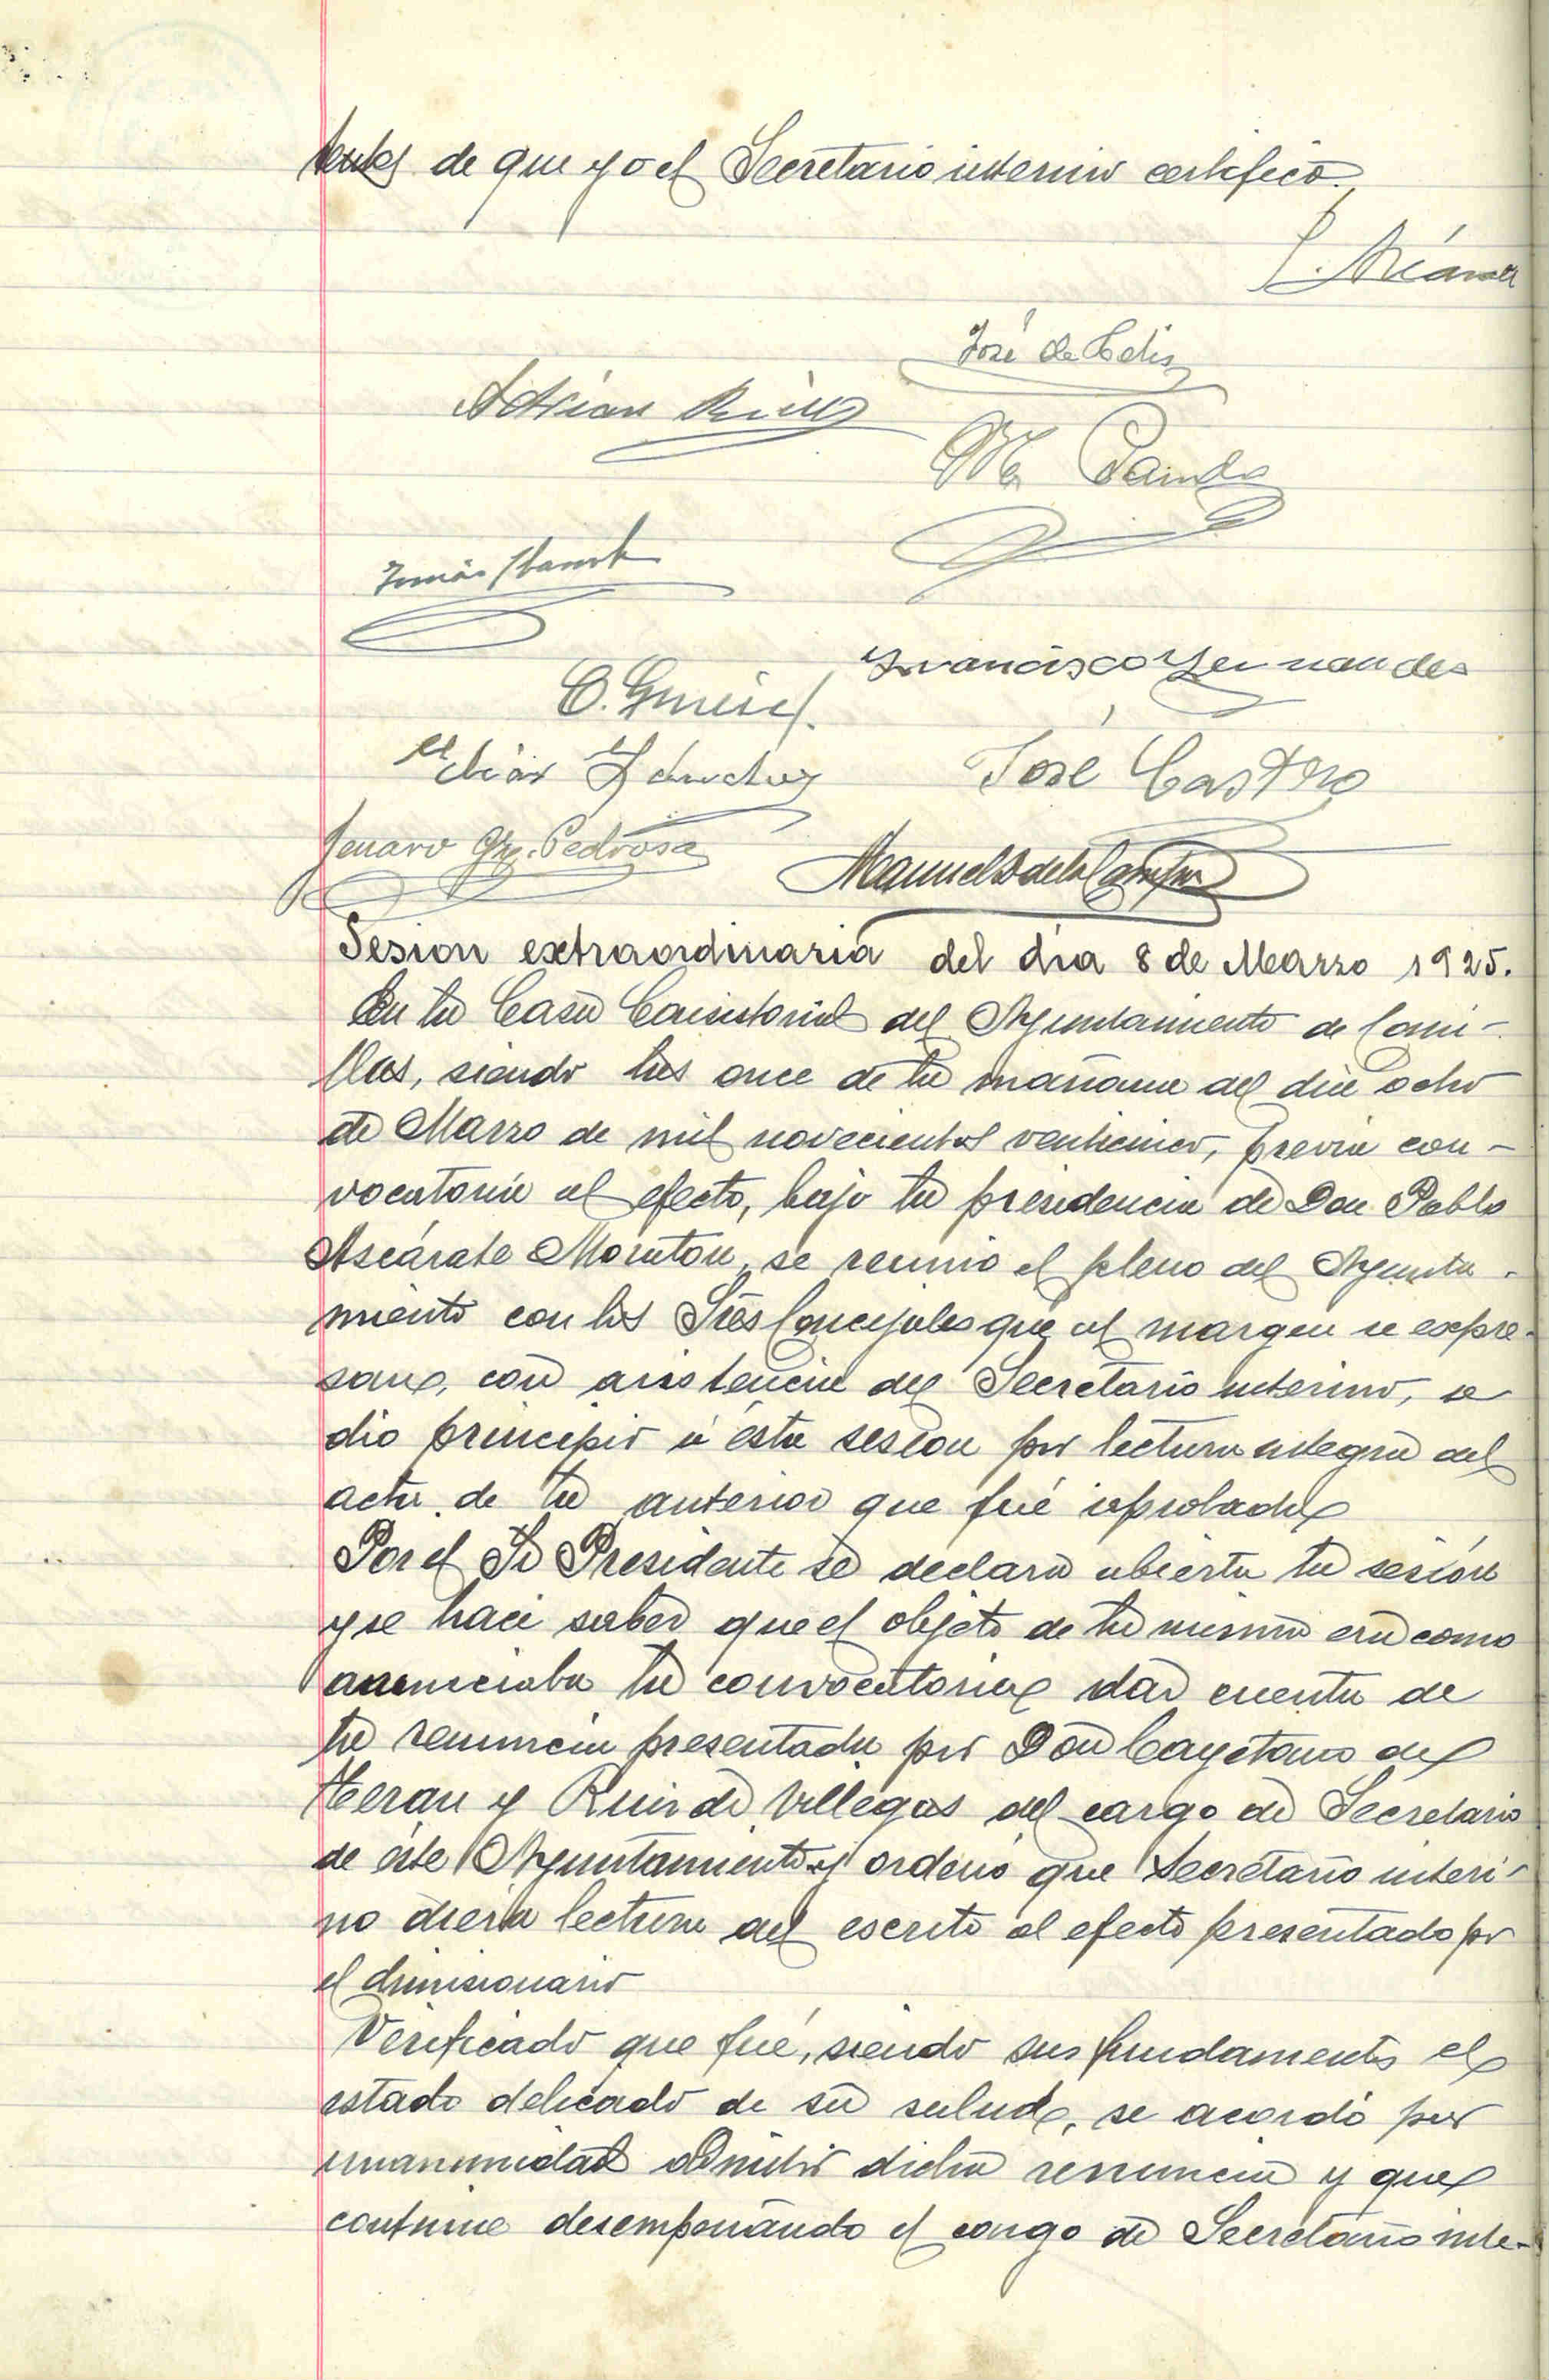 de que yo el Secretario interino certifico.
José de Celis
Adrian
M. Pando
Tomás
Francisco Fernandes
Elias Sanchez
José Castro
Jenaro Gz. Pedrosa
Manuel de la Campa
Sesion extraordinaria del dia 8 de Marzo 1925.
En la Casa Consistorial del Ayuntamiento de Comi-
llas, siendo las once de la mañana del dia ocho
de Marzo de mil novecientos venticinco, previa con-
vocatoria al efecto, bajo la presidencia de Don Pablo
Ascárate Moraton, se reunio el pleno del Ayunta-
miento con los Sres Concejales que al margen se expre-
san, con asistencia del Secretario interino, se
dio principio á ésta sesion por lectura integra del
acta de la anterior que fué aprobada
Por el Sr Presidente se declara abierta la sesión
y se hace saber que el objeto de la misma era como
anunciaba la convocatoria dar cuenta de
la renuncia presentada por Don Cayetano del
Teran y Ruiz de Villegas del cargo de Secretario
de éste Ayuntamiento y ordenó que Secretario interi-
no diera lectura del escrito al efecto presentado por
el dimisionario
Verificado que fué, siendo sus fundamentos el
estado delicado de su salud, se acordó por
unanimidad admitir dicha renuncia y que
continue desempeñando el cargo de Secretario inte-